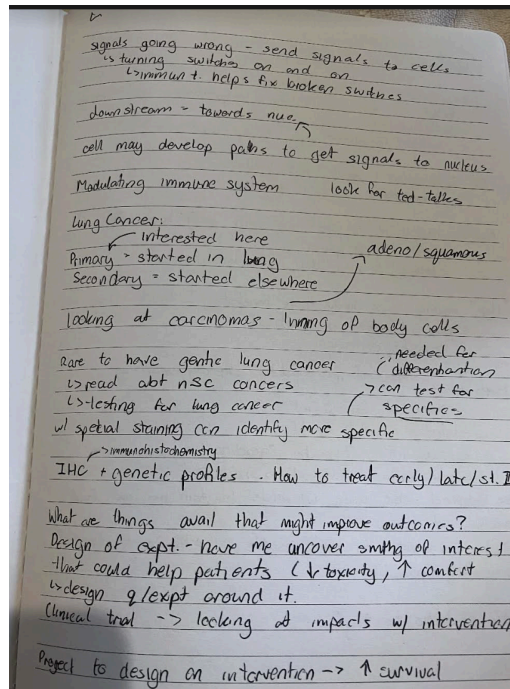 signals going wrong - send signals to cells
↳ turning switches on and on
↳ immun t. helps fix broken switches
downstream = towards nuc.
cell may develop paths to get signals to nucleus
Modulating immune system look for ted-talks
Lung Cancer:
interested here
adeno/squamous
Primary = started in lung
Secondary = started elsewhere
looking at carcinomas - lining of body cells
Rare to have gentic lung cancer (needed for differenhation
↳ read abt nsc cancers → can test for
↳ testing for lung cancer specifics
w/ special staining can identify more specific
→ immunohistochemistry
IHC + genetic profiles. How to treat early/late/st. I
What are things avail that might improve outcomes?
Design of expt. - have me uncover smthg of interest
that could help patients (↓ toxicity, ↑ comfort
↳ design q/expt around it.
Clinical trial --> looking at impacts w/ intervention
Project to design an intervention --> ↑ survival